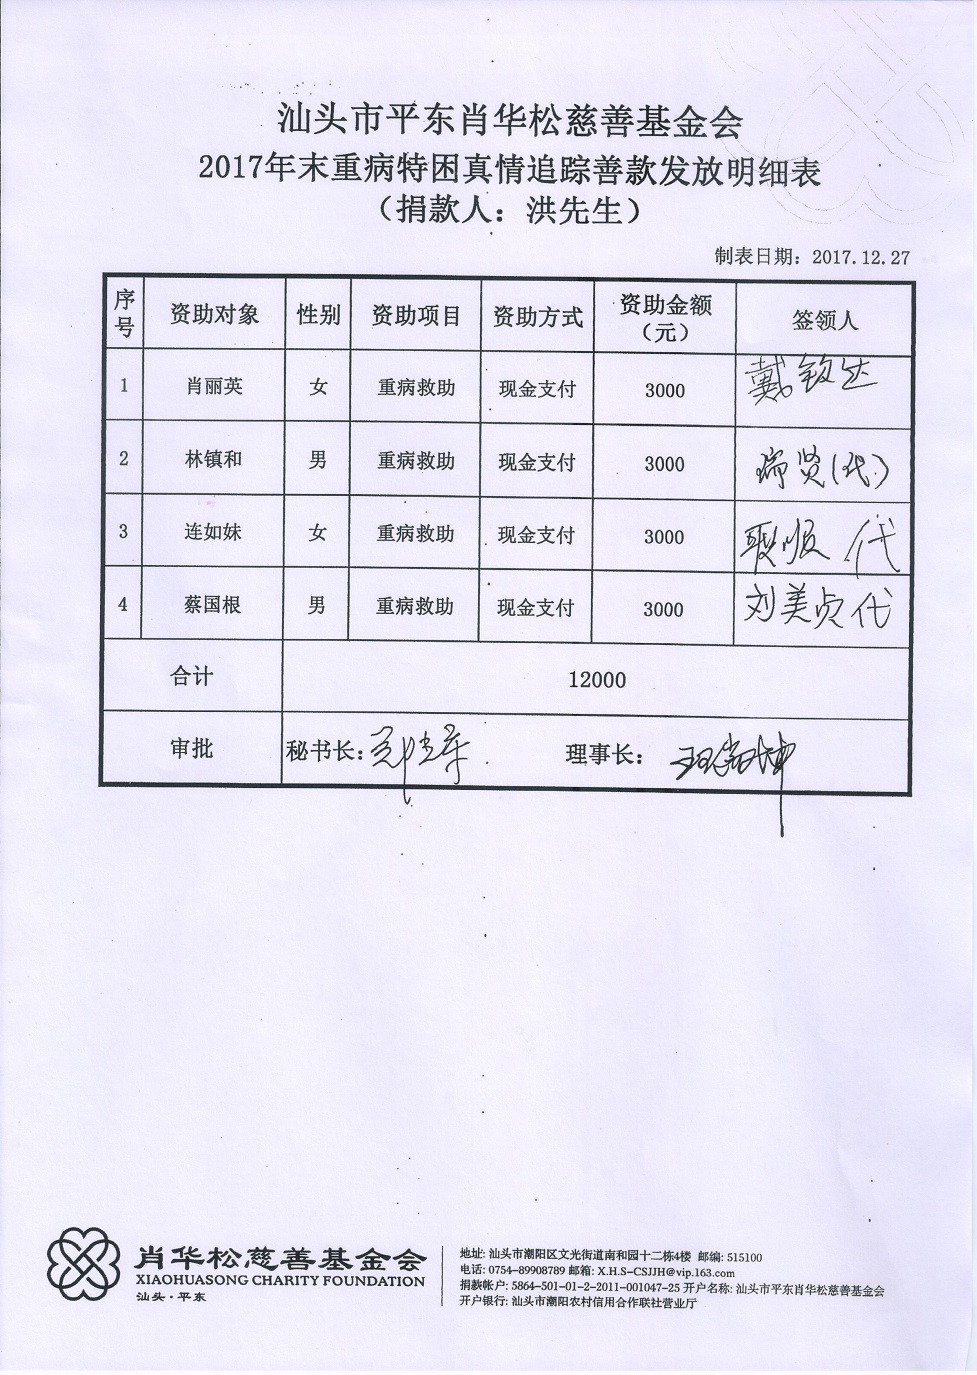 汕头市平东肖华松慈善基金会
2017年末重病特困真情追踪善款发放明细表
（捐款人：洪先生）
制表日期：2017.12.27
序号 资助对象 性别 资助项目 资助方式 资助金额（元） 签领人
1 肖丽英 女 重病救助 现金支付 3000 戴钦达
2 林镇和 男 重病救助 现金支付 3000 瑞贤(代)
3 连如妹 女 重病救助 现金支付 3000 代
4 蔡国根 男 重病救助 现金支付 3000 刘美贞代
合计 12000
审批 秘书长： 理事长：
肖华松慈善基金会
XIAOHUASONG CHARITY FOUNDATION
汕头·平东
地址: 汕头市潮阳区文光街道南和园十二栋4楼 邮编: 515100
电话: 0754-89908789 邮箱: X.H.S-CSJJH@vip.163.com
捐款帐户: 5864-501-01-2-2011-001047-25 开户名称: 汕头市平东肖华松慈善基金会
开户银行: 汕头市潮阳农村信用合作联社营业厅